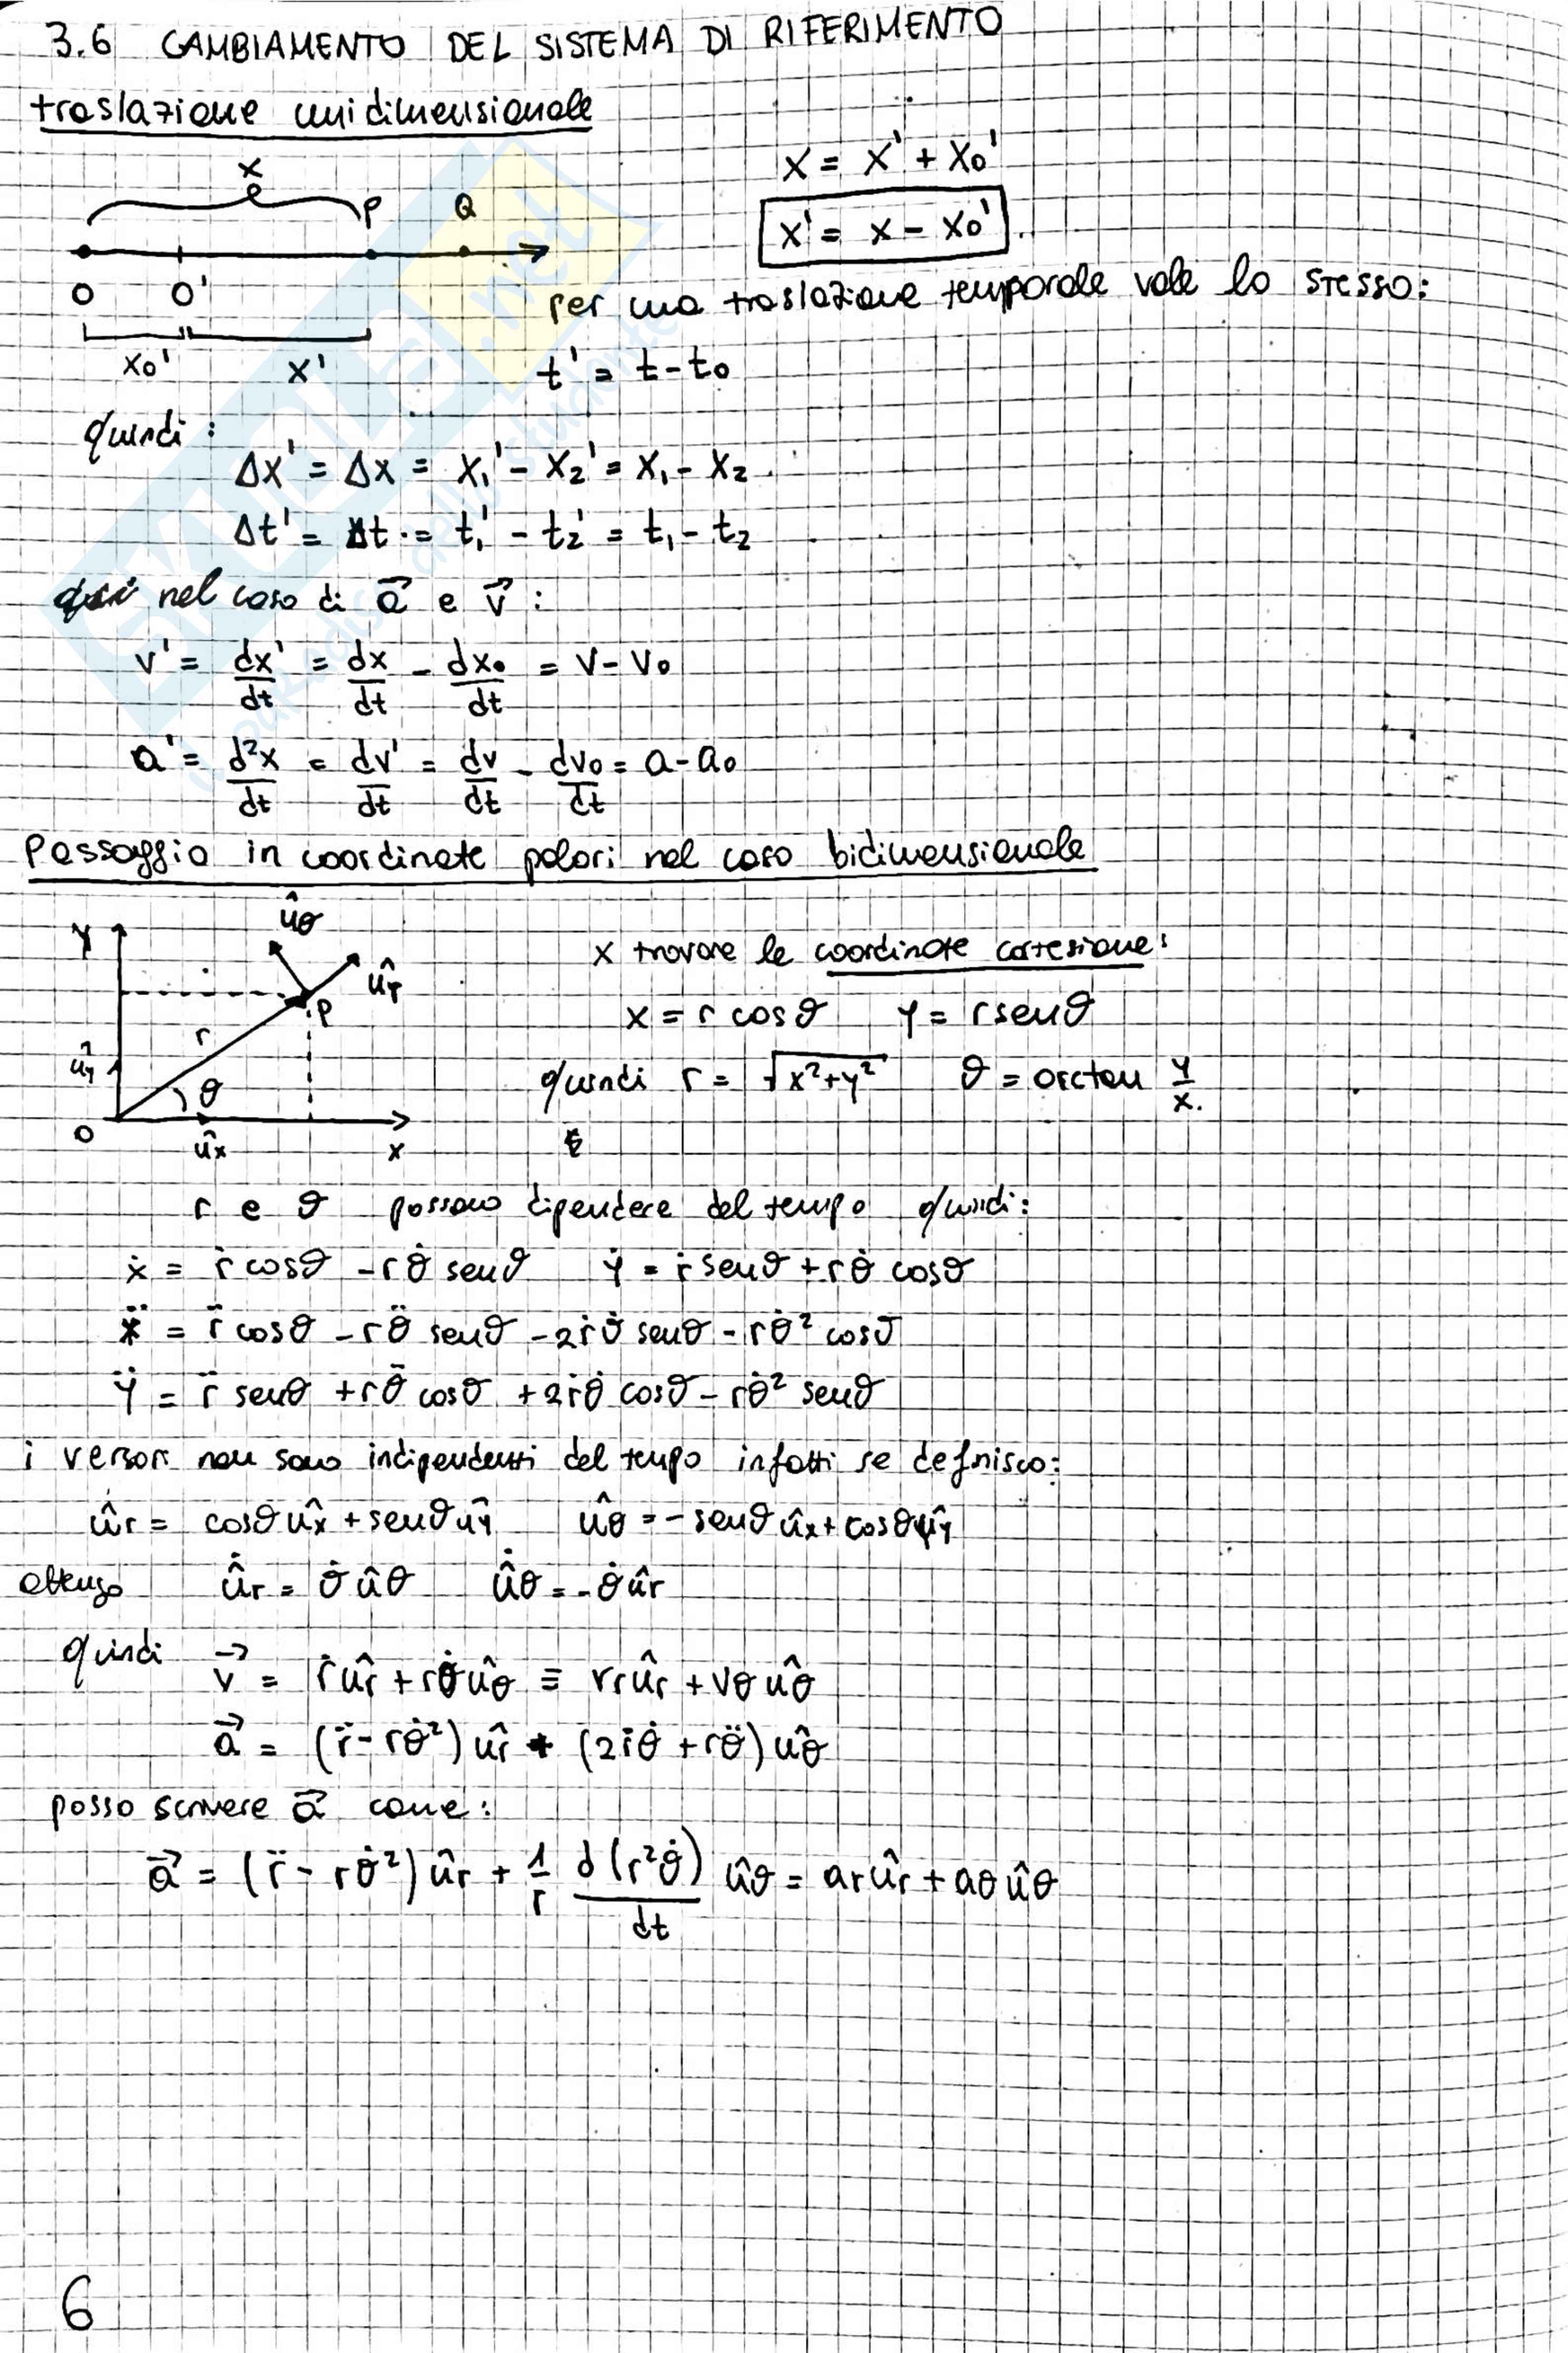 3.6 CAMBIAMENTO DEL SISTEMA DI RIFERIMENTO
traslazione unidimensionale
x
P Q
O O'
x₀' x'
x = x' + x₀'
x' = x - x₀'
per una traslazione temporale vale lo stesso:
t' = t - t₀
quindi:
Δx' = Δx = x₁' - x₂' = x₁ - x₂
Δt' = Δt = t₁' - t₂' = t₁ - t₂
nel caso di a⃗ e v⃗ :
v' = dx'/dt = dx/dt - dx₀/dt = v - v₀
a' = d²x/dt = dv'/dt = dv/dt - dv₀/dt = a - a₀
Passaggio in coordinate polari nel caso bidimensionale
y ûθ ûr
P
r
ûy θ
O ûx x
x trovare le coordinate cartesiane:
x = r cosθ y = r senθ
quindi r = √(x²+y²) θ = arctan y/x
r e θ possono dipendere dal tempo quindi:
ẋ = ṙ cosθ - rθ̇ senθ ẏ = ṙ senθ + rθ̇ cosθ
ẍ = r̈ cosθ - rθ̈ senθ - 2ṙθ̇ senθ - rθ̇² cosθ
ÿ = r̈ senθ + rθ̈ cosθ + 2ṙθ̇ cosθ - rθ̇² senθ
i versori non sono indipendenti dal tempo infatti se definisco:
ûr = cosθ ûx + senθ ûy ûθ = - senθ ûx + cosθ ûy
ottengo û̇r = θ̇ ûθ û̇θ = - θ̇ ûr
quindi v⃗ = ṙ ûr + rθ̇ ûθ ≡ vr ûr + vθ ûθ
a⃗ = (r̈ - rθ̇²) ûr + (2ṙθ̇ + rθ̈) ûθ
posso scrivere a⃗ come:
a⃗ = (r̈ - rθ̇²) ûr + 1/r d(r²θ̇)/dt ûθ = ar ûr + aθ ûθ
6